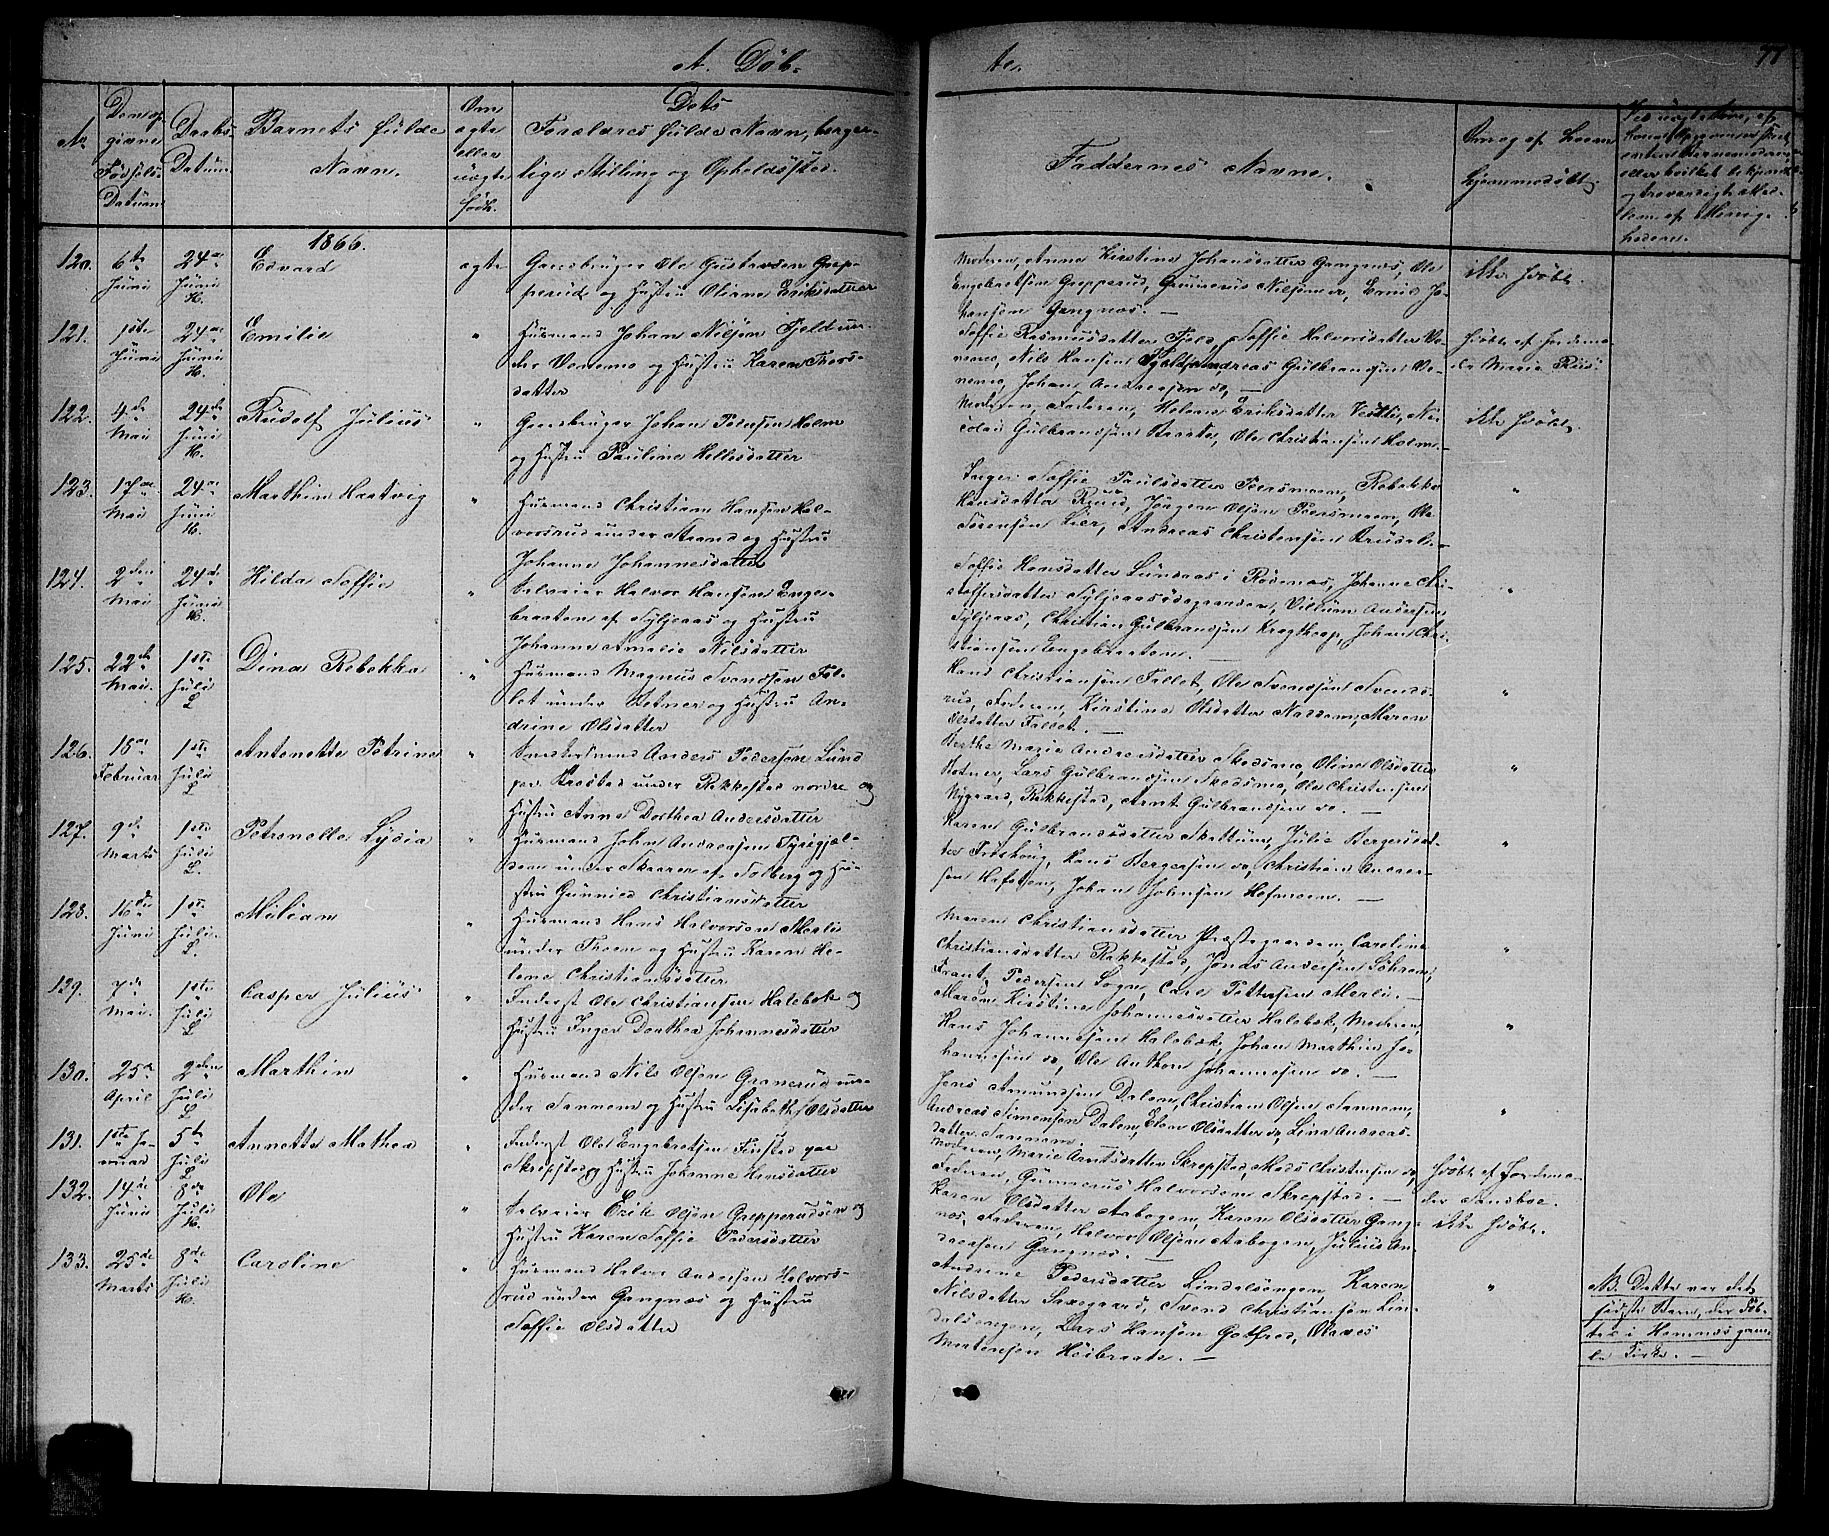 A. Döb-
te.
77
No
Den op-
givne
Fødsels-
Datum
Daabs
Datum
Barnets fulde
Navn.
Om
ægte
eller
uægte
født.
Dets
Forældres fulde Navn, borger-
lige Stilling og Opholdssted.
Faddernes Navne.
1866.
120. 6te Juni
24de Juni H.
Edvard
ægte
Gaardbruger Ole Gustavsen Grep-
perud og Hustru Oliane Eriksdatter
Moderen, Anne Kirstine Johansdatter Gangnæs, Ole
Engebretsen Grepperud, Gunnerius Nilsen, Emil Jo-
hansen Gangnæs. —
ikke hjdbt.
121. 1ste Juni
24de Juni H.
Emilie
"
Husmand Johan Nilsen Fjeld un-
der Vonemo og Hustru Karen Thors-
datter
Soffie Rasmusdatter Fjeld, Soffie Halvorsdatter Vo-
nemo, Nils Hansen Fjeld, Andreas Gulbrandsen Vo-
nemo, Johan Andreasen do, —
hjdbt af Jordemo-
der Marie Riis.
122. 4de Mai
24de Juni H.
Rudolf Julius
"
Gaardbruger Johan Pedersen Holm
og Hustru Pauline Hellesdatter
Moderen, Faderen, Helene Eriksdatter Vestli, Ni-
colai Gulbrandsen Braate, Ole Christiansen Holm. —
ikke hjdbt.
123. 17de Mai
24de Juni H.
Marthin Hartvig
"
Husmand Christian Hansen Hal-
vorsrud under Strand og Hustru
Johanne Johannesdatter
Inger Soffie Paulsdatter Pedersmoen, Rebekka
Hansdatter Ruud, Jørgen Olsen Pedersmoen, Ole
Sørensen Lier, Andreas Christensen Krusæl. —
"
124. 2den Mai
24de Juni H.
Hilda Soffie
"
Selveier Halvor Hansen Enge-
braaten af Syljeaas og Hustru
Johanne Amalie Nilsdatter
Soffie Hansdatter Lundaas i Rødenæs, Johanne Kri-
stoffersdatter Syljeaasødegaarden, Vilhum Andersen
Syljeaas, Christian Gulbrandsen Krogthorp, Johan Chri-
stiansen Engebraaten. —
"
125. 22de Mai.
1ste Juli L
Dina Rebekka
"
Husmand Magnus Svendsen Fal-
let under Botner og Hustru An-
drine Olsdatter
Hans Christiansen Fallet, Ole Svendsen Svends-
rud, Faderen, Kirstine Olsdatter Naddum, Maren
Olsdatter Fallet. —
"
126. 18de Februar
1ste Juli L
Antonette Petrine
"
Smedsvend Anders Pedersen Lund
paa Krosbøl under Rakkestad nordre og
Hustru Anne Dorthea Andersdatter
Berthe Marie Andreasdatter Skedsmo, Oline Olsdatter
Botner, Lars Gulbrandsen Skedsmo, Ole Christensen
Nygaard, Rakkestad, Arnt Gulbrandsen do. —
"
127. 9de Marts
1ste Juli L.
Petronelle Lydia
"
Husmand John Andreasen Tyrigjæl-
deren under Skaaren af Solberg og Hu-
stru Gunnild Christiansdatter
Karen Gulbrandsdatter Skattum, Julie Bergersdat-
ter Frøshoug, Hans Bergersen do, Christian Ander-
sen Hofsten, Johan Johnsen Hofmoen. —
"
128. 16de Juni
1ste Juli. L.
Milian
"
Husmand Hans Halvorsen Merli
under Thoen og Hustru Karen He-
lene Christiansdatter
Maren Christiansdatter Præstegaarden, Caroline
Christiansdatter Rakkestad, Jonas Andersen Sohren,
Frantz Pedersen Sogn, Carl Pettersen Merli. —
"
129. 7de Mai.
1ste Juli L
Casper Julius
"
Inderst Ole Christiansen Halebek og
Hustru Inger Dorthea Johannesdatter
Maren Kirstine Johannesdatter Halebek, Moderen,
Hans Johannesen Halebek, Johan Marthin Jo-
hannesen do, Ole Anthon Johannesen do. —
"
130. 25de April
2den Juli L
Marthin
"
Husmand Nils Olsen Granerud un-
der Sannem og Hustru Lisabeth Olsdatter
Jens Amundsen Dalen, Christian Olsen Sannem,
Andreas Simensen Dalen, Elen Olsdatter do, Lina Andreas-
datter Sannem. —
"
131. 1ste Ja-
nuar
5te Juli L
Annette Mathea
"
Inderst Ole Engebretsen Finstad paa
Skrepstad og Hustru Johanne Hansdatter
Moderen, Marie Arntsdatter Skrepstad, Mads Christensen do,
Faderen, Gunnerus Halvorsen Skrepstad. —
hjdbt af Jordemo-
der Sandboe.
132. 14de Juni
8de Juli H.
Ole
"
Selveier Erik Olsen Grepperudsen og
Hustru Karen Soffie Pedersdatter
Karen Olsdatter Aabogen, Karen Olsdatter Gang-
næs, Faderen, Halvor Olsen Aabogen, Julius An-
dersen Gangnæs. —
ikke hjdbt.
133. 25de Marts
8de Juli H.
Caroline
"
Husmand Halvor Andersen Halvors-
rud under Gangnæs og Hustru
Soffie Olsdatter
Andrine Pedersdatter Lindalsengen, Karen
Nilsdatter Saxegaard, Svend Christiansen Lin-
dalsengen, Lars Hansen Gotfred, Olaves
Mortensen Høibraate. —
"
NB. Dette var det
sidste Barn, der døb-
tes i Hemnæs gam-
le Kirke. —